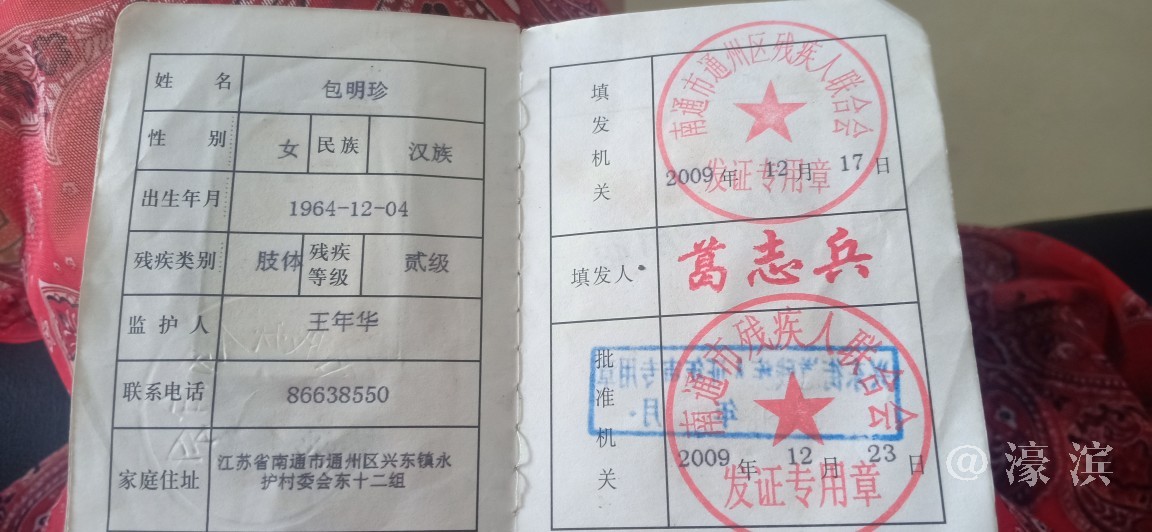 姓名 包明珍
性别 女 民族 汉族
出生年月 1964-12-04
残疾类别 肢体 残疾等级 贰级
监护人 王年华
联系电话 86638550
家庭住址 江苏省南通市通州区兴东镇永
护村委会东十二组
填发机关
南通市通州区残疾人联合会
发证专用章
2009年 12月 17日
填发人 葛志兵
批准机关
南通市残疾人联合会
发证专用章
2009年 12月 23日
@濠滨